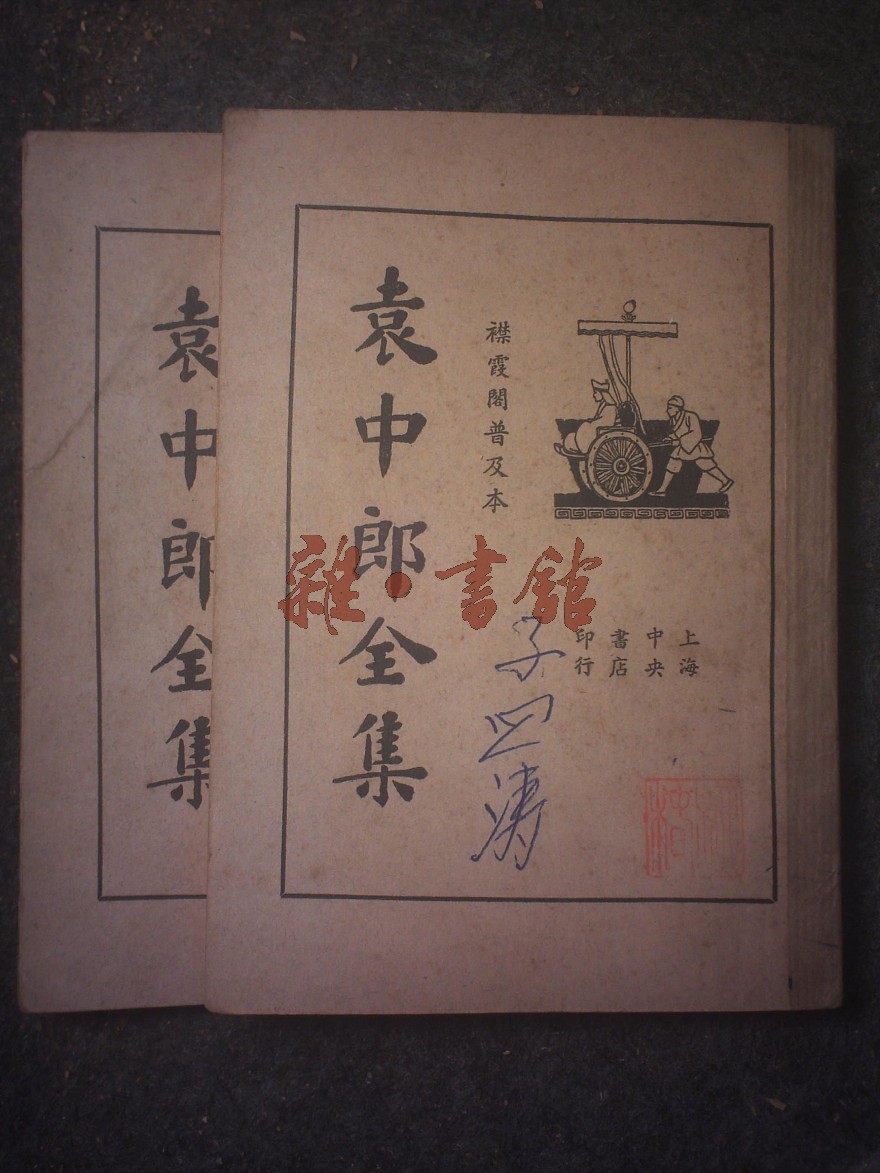 上海
中央
書店
印行
襟霞閣普及本
袁中郎全集
袁中郎全集
雜·書舘